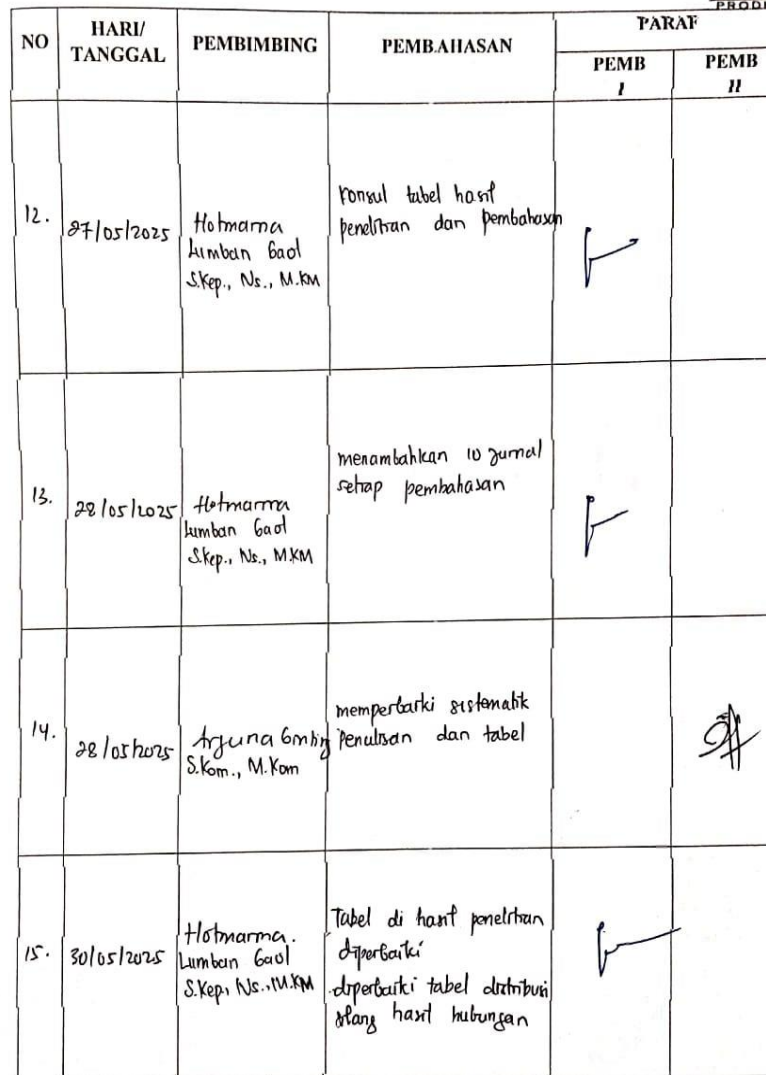 PRODI
NO
HARI/
TANGGAL
PEMBIMBING
PEMBAHASAN
PARAF
PEMB
I
PEMB
II
12.
27/05/2025
Hotmarna
Lumban Gaol
S.Kep., Ns., M.KM
Konsul tabel hasil
penelitian dan pembahasan
13.
28/05/2025
Hotmarna
Lumban Gaol
S.Kep., Ns., M.KM
menambahkan 10 jurnal
setiap pembahasan
14.
28/05/2025
Arjuna Ginting
S.Kom., M.Kom
memperbaiki sistematik
penulisan dan tabel
15.
30/05/2025
Hotmarna.
Lumban Gaol
S.Kep, Ns., M.KM
Tabel di hasil penelitian
diperbaiki
diperbaiki tabel distribusi
silang hasil hubungan